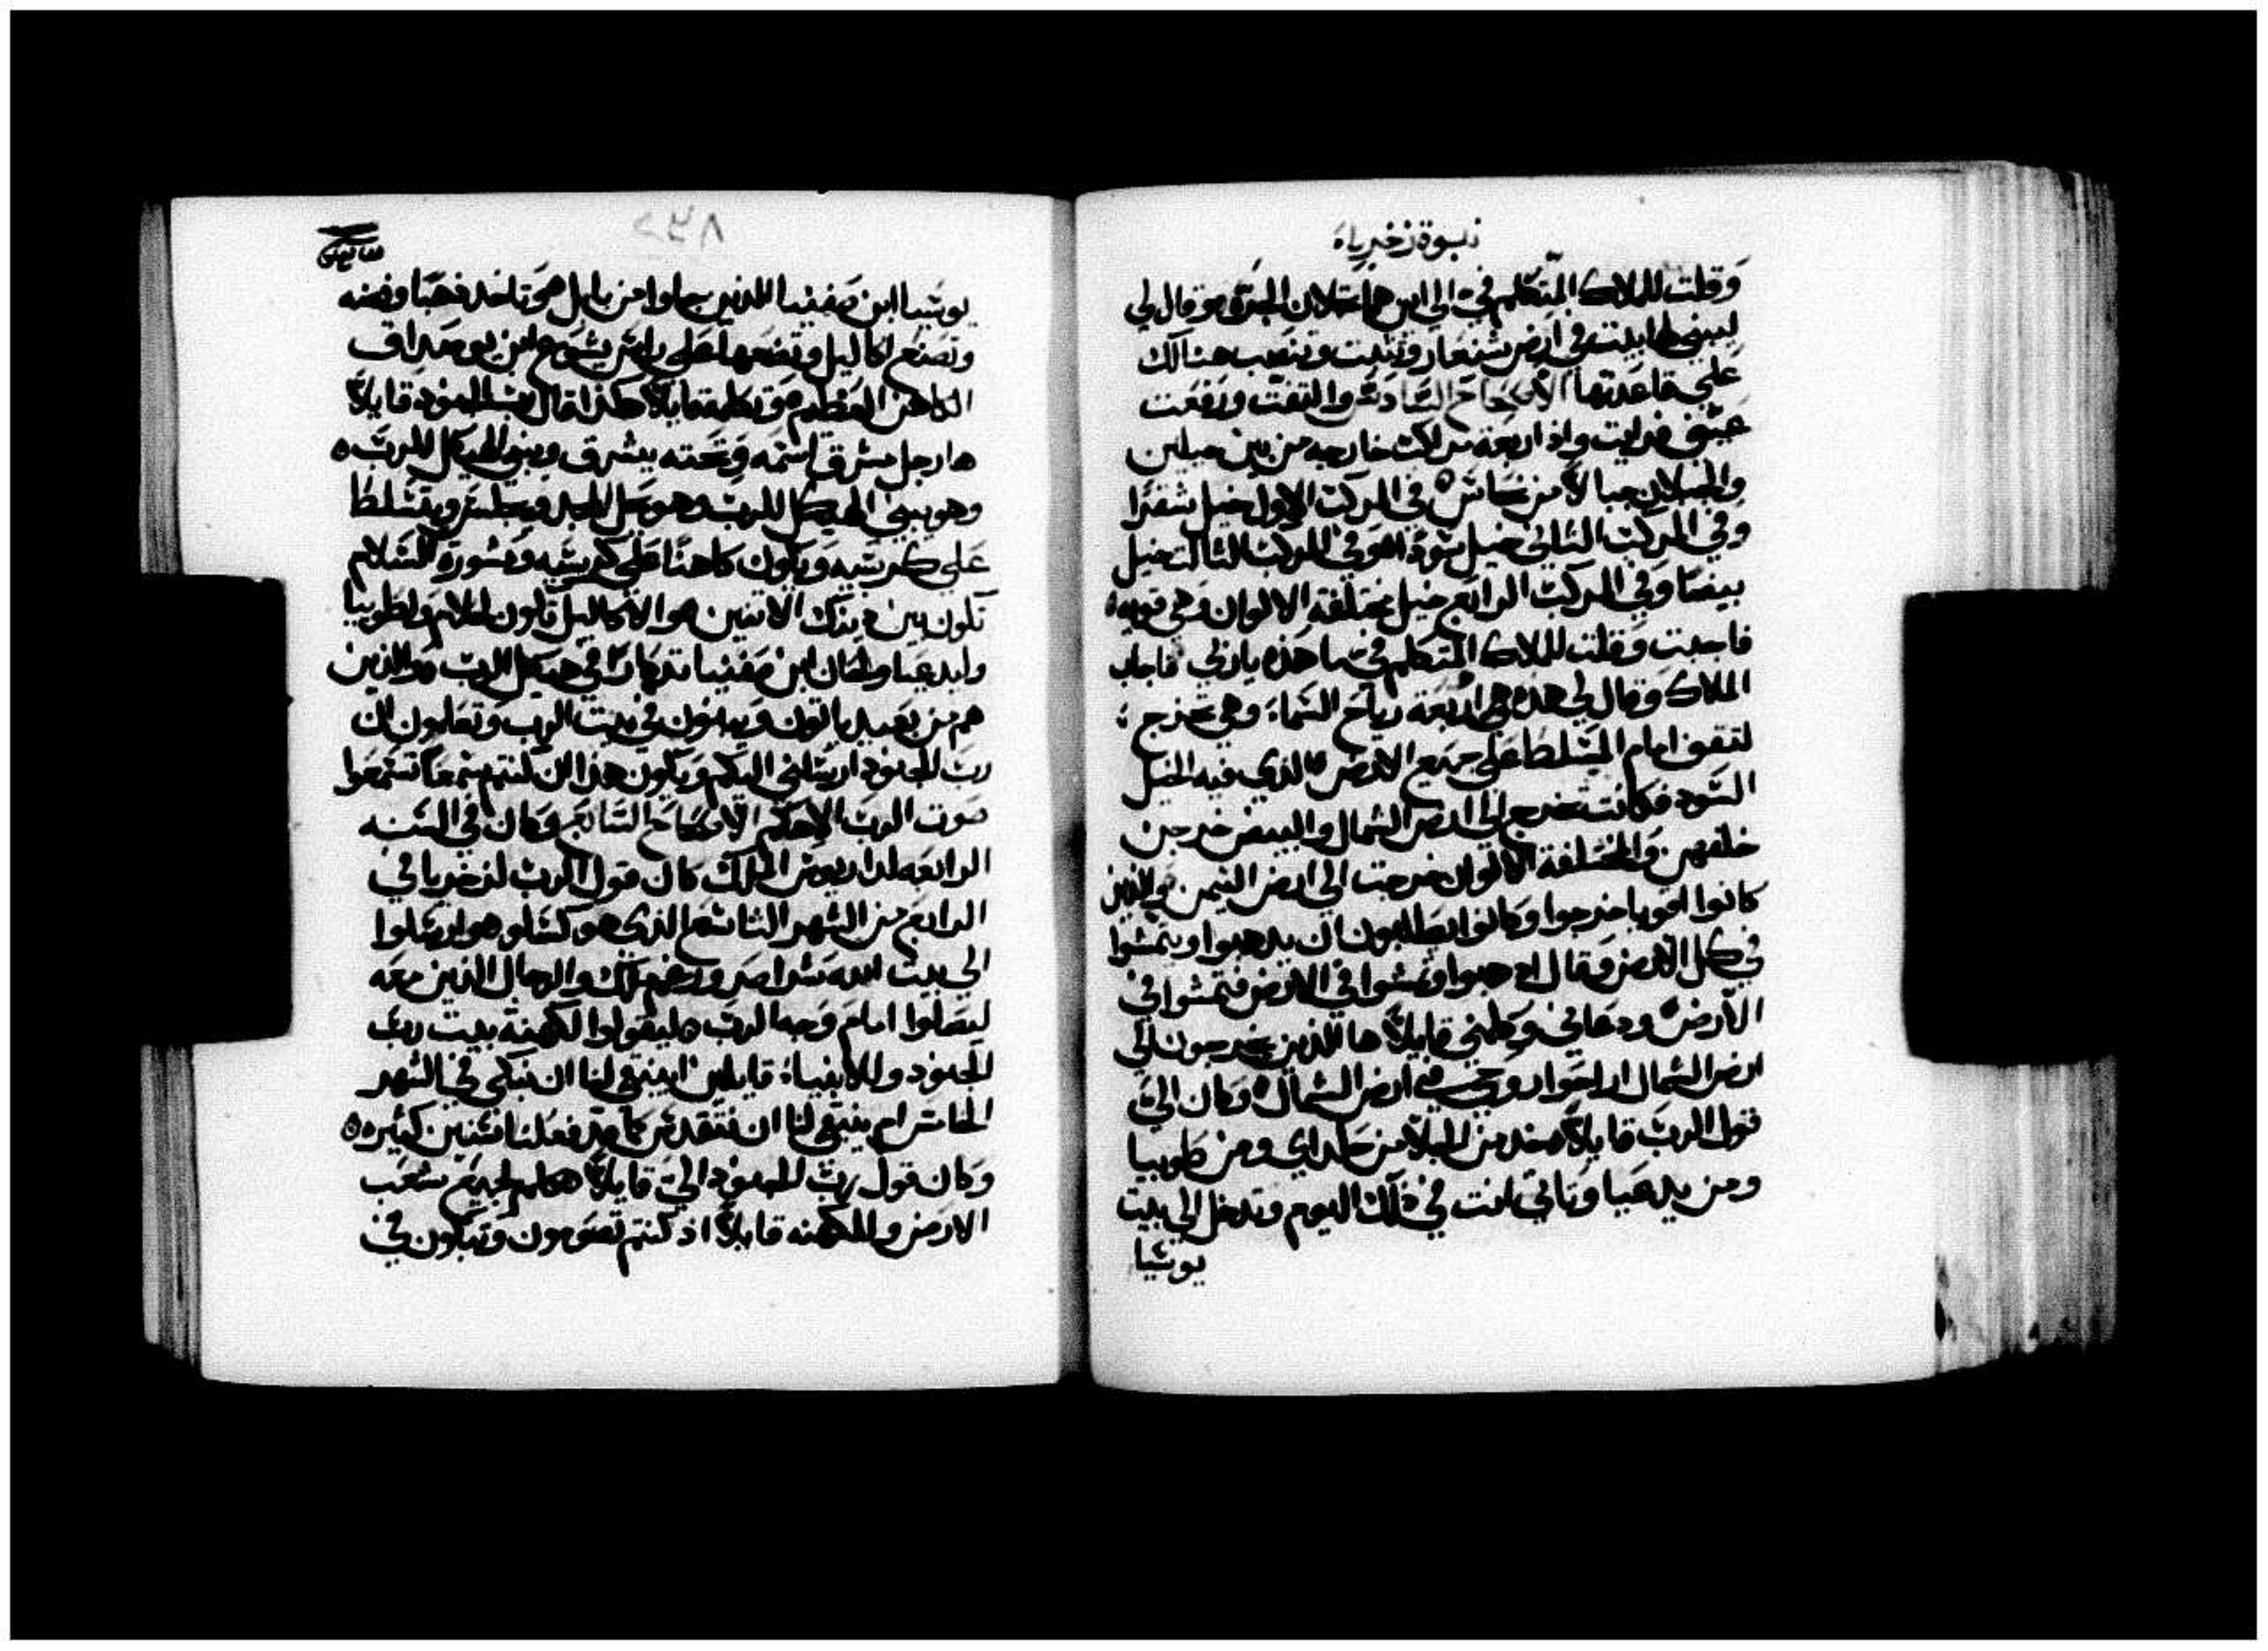 نبوة زخرياء
وقلت للملاك المتكلم فيّ الى اين هما تحملان الجرة وقال لي
ليبني لها بيت في ارض شنعار وتثبت وتنصب هنالك
على قاعدتها الاصحاح السادس والتفت ورفعت
عينيّ فرايت واذا اربعة مراكب خارجه من بين جبلين
والجبلان جبالاً من نحاس في المركب الاول خيل شقرا
وفي المركب الثاني خيل سود وفي المركب الثالث خيل
بيضا وفي المركب الرابع خيل مختلفة الالوان وهي قويه
فاجبت وقلت للملاك المتكلم فيّ ما هذه يا ربي فاجاب
الملاك وقال لي هذه هي اربعة رياح السماء وهي تخرج
لتقف امام المتسلط على جميع الارض الذي فيه الخيل
السود فكانت تخرج الى ارض الشمال والبيض خرجن
خلفهن والمختلفة الالوان خرجت الى ارض التيمن والذين
كانوا اقويا خرجوا وكانوا يطلبون ان يذهبوا ويتمشوا
في كل الارض وقال اذهبوا وتمشوا في الارض فتمشوا في
الارض ودعاني وكلمني قايلاً ها الذين يخرجون الى
ارض الشمال اراحوا روحي في ارض الشمال وكان اليّ
قول الرب قايلاً خذ من الجلا من حلداي ومن طوبيا
ومن يدعيا وتاتي انت في ذلك اليوم وتدخل الى بيت
يوشيا
يوشيا ابن صفنيا الذين جاوا من بابل وتاخذ ذهبا وفضه
وتصنع اكاليل وتضعها على راس يشوع ابن يوصداق
الكاهن العظيم وتكلمه قايلاً هكذا قال رب الجنود قايلاً
ها رجل مشرق اسمه وتحته يشرق ويبني الهيكل للرب
وهو يبني الهيكل للرب وهو يحمل المجد ويجلس ويتسلط
على كرسيه ويكون كاهنا على كرسيه ومشورة السلام
تكون بين ذينك الاثنين والاكاليل تكون لحلام ولطوبيا
وليدعيا ولحان ابن صفنيا تذكارا في هيكل الرب والذين
هم من بعيد ياتون ويبنون في بيت الرب وتعلمون ان
رب الجنود ارسلني اليكم ويكون هذا ان كنتم سمعا تسمعوا
صوت الرب الاهكم الاصحاح السابع وكان في السنه
الرابعه لداريوس الملك كان قول الرب لزخريا في
الرابع من الشهر التاسع الذي هو كسلو وارسلوا
الى بيت الله شراصر ورغم ملك والرجال الذين معه
ليصلوا امام وجه الرب ليقولوا لكهنة بيت رب
الجنود وللانبياء قايلين اينبغي لنا ان نبكي في الشهر
الخامس ام ينبغي لنا ان نتقدس كما قد فعلنا سنين كثيره
وكان قول رب الجنود اليّ قايلاً كلم لجميع شعب
الارض وللكهنه قايلاً اذ كنتم تصومون وتبكون في